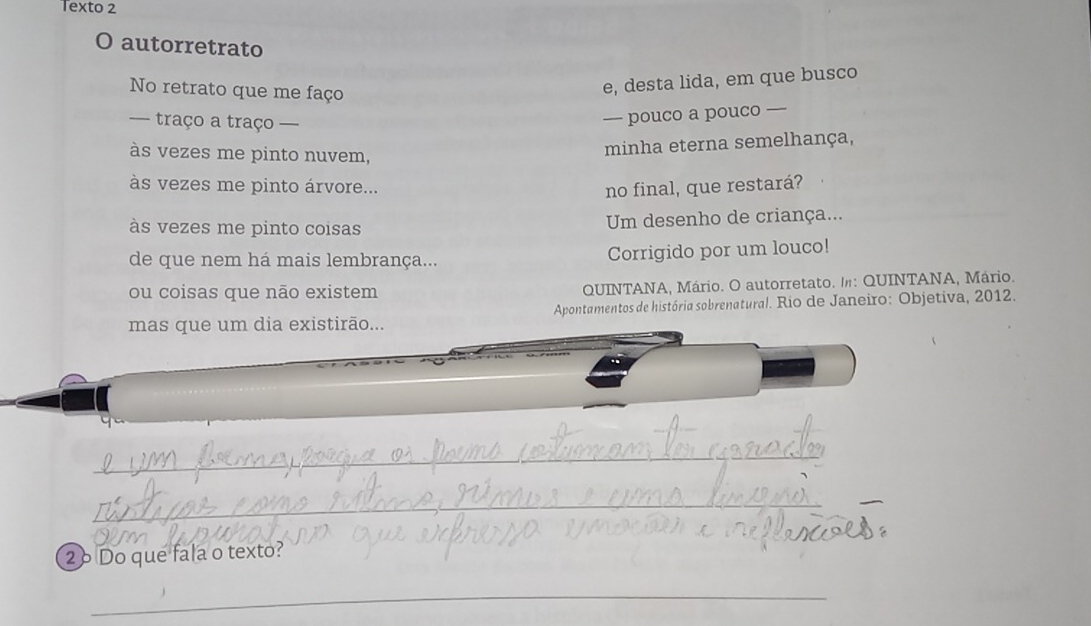 Texto 2
O autorretrato
No retrato que me faço
— traço a traço —
às vezes me pinto nuvem,
às vezes me pinto árvore...
às vezes me pinto coisas
de que nem há mais lembrança...
ou coisas que não existem
mas que um dia existirão...
e, desta lida, em que busco
— pouco a pouco —
minha eterna semelhança,
no final, que restará?
Um desenho de criança...
Corrigido por um louco!
QUINTANA, Mário. O autorretato. In: QUINTANA, Mário.
Apontamentos de história sobrenatural. Rio de Janeiro: Objetiva, 2012.
CLASSIC
e um poema, porque os poema costumam ter caracte
rísticas como ritmo, rimas e uma lingua
gem figurativa que expressa emoções e reflexões.
2 Do que fala o texto?